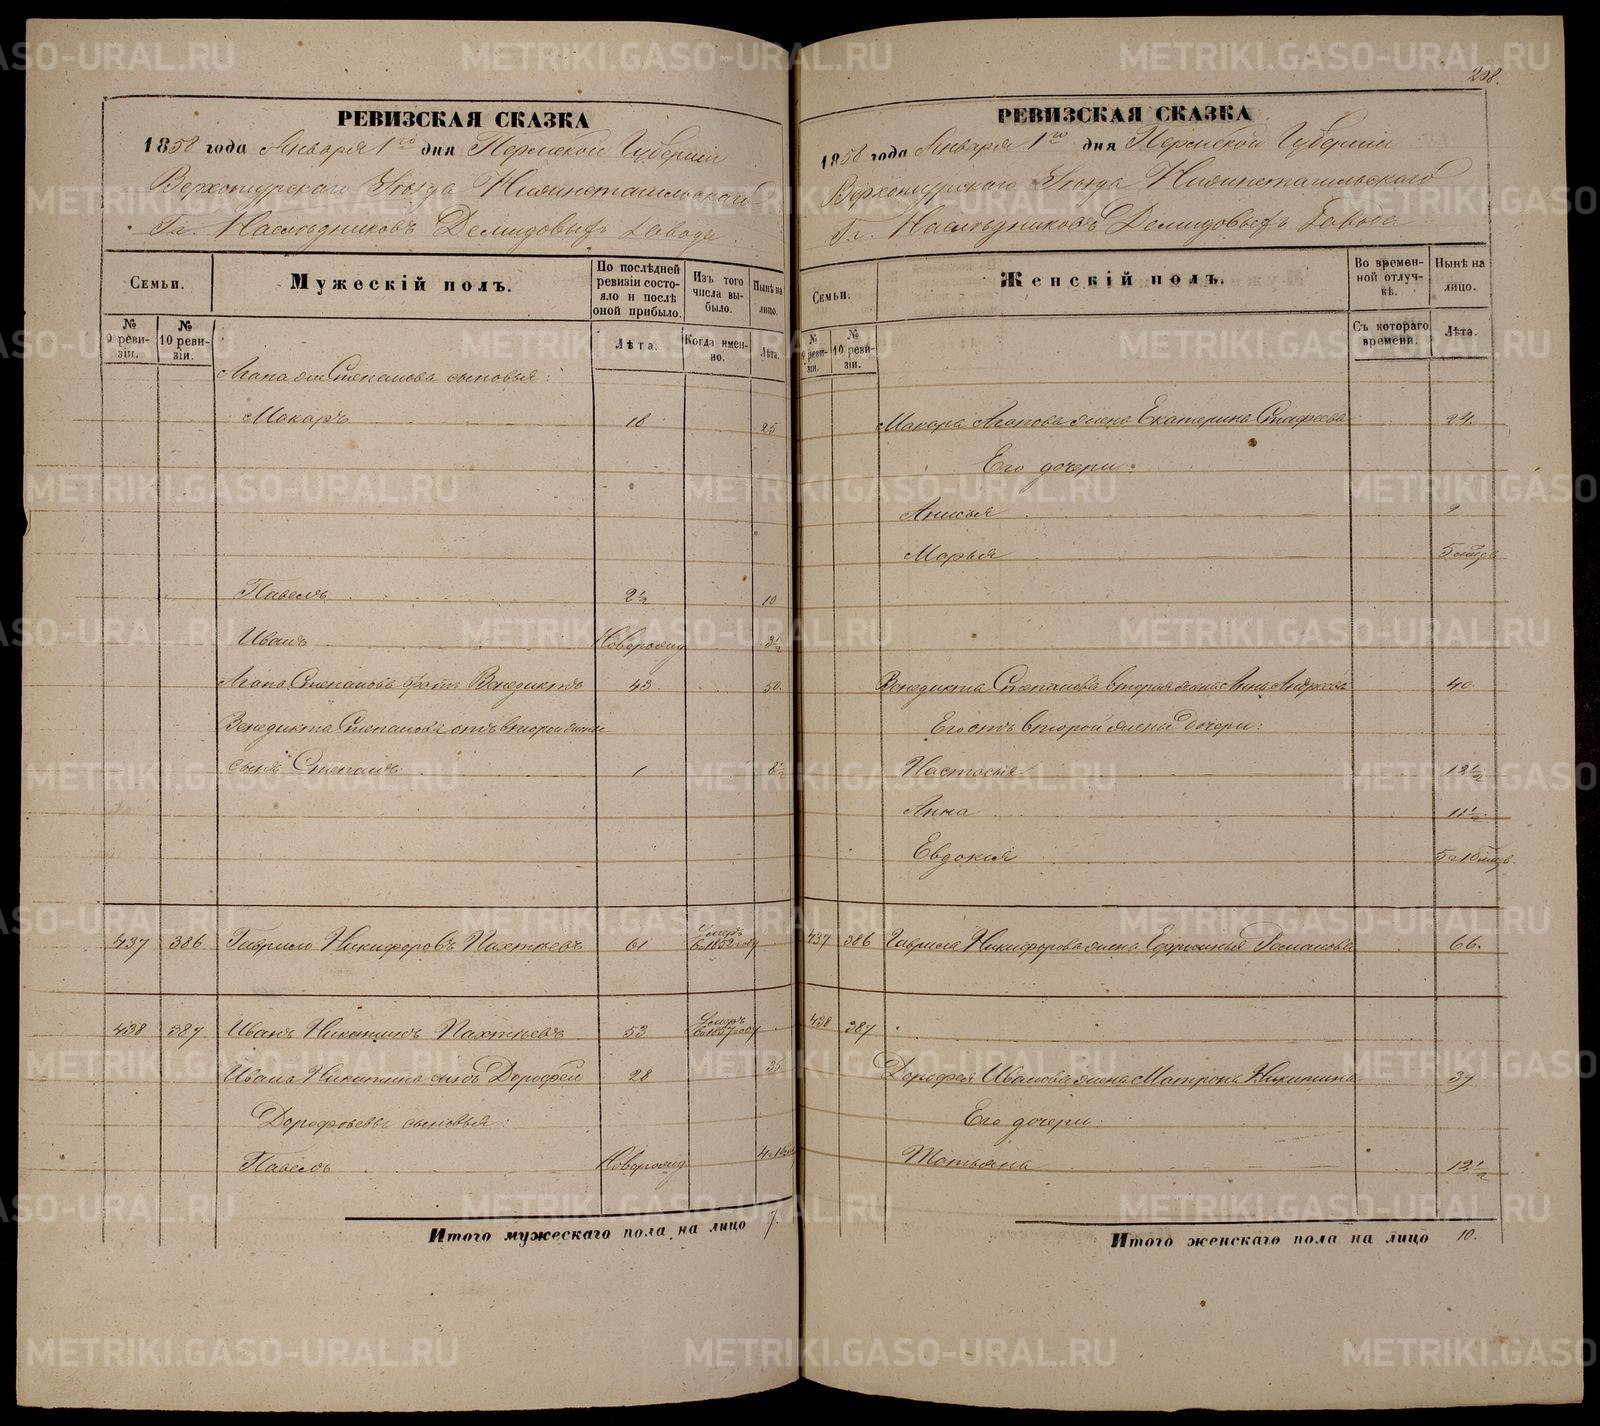 208.
РЕВИЗСКАЯ СКАЗКА
1858 года Января 1го дня Пермской Губернии
Верхотурскаго Уѣзда Нижнетагильскаго
Гг. Наслѣдниковъ Демидовыхъ завода.
Семьи.
Мужескій полъ.
По послѣдней ревизіи состояло и послѣ оной прибыло.
Изъ того числа выбыло.
Нынѣ на лицо.
№ 9 ревизіи.
№ 10 ревизіи.
Лѣта.
Когда именно.
Лѣта.
Степанова сыновья:
Макаръ 18 25
Павелъ 2½ 10
Иванъ Новорожд 3½
Степанова братъ Венедиктъ 43 50
Венедикта Степанова отъ второй жены
сынъ Степанъ 1 8½
437 386 Гаврило Никифоровъ Пахтѣевъ 61 Умеръ въ 1852 году
438 387 Иванъ Никитинъ Пахтѣевъ 53 Умеръ въ 1857 году
Ивана Никитина сынъ Дорофей 28 35
Дорофѣевы сыновья:
Павелъ Новорожд
Итого мужескаго пола на лицо 7.
РЕВИЗСКАЯ СКАЗКА
1858 года Января 1го дня Пермской Губерніи
Верхотурскаго Уѣзда Нижнетагильскаго
Гг. Наслѣдниковъ Демидовыхъ Завода
Семьи.
Женскій полъ.
Во временной отлучкѣ.
Нынѣ на лицо.
№ 9 ревизіи.
№ 10 ревизіи.
Съ котораго времени.
Лѣта.
Макара жена Екатерина 24
Его дочери:
Анисья 2
Марья 5 мѣсяц
Венедикта Степанова вторая жена Анна Андреева 40
Его отъ второй жены дочери:
Настасья 13½
Анна 11½
Евдокия
437 386 Гаврила Никифорова жена Ефросинья Романова 66.
438 387
Дорофея Иванова жена Матрона Никитина 37
Его дочери:
Татьяна 12½
Итого женскаго пола на лицо 10.
METRIKI.GASO-URAL.RU